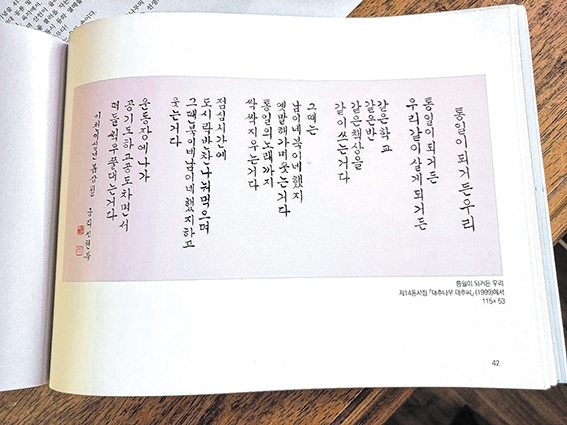 통일이되거든우리
통일이되거든
우리같이살게되거든
같은학교
같은반
같은책상을
같이쓰는거다
그때는
남이네북이네했지
옛말해가며웃는거다
통일의노래까지
싹싹지우는거다
점심시간에
도시락반찬나눠먹으며
그땐북이네남이네했지하고
웃는거다
운동장에나가
공기도하고공도차면서
떠들썩우쭐대는거다
통일이 되거든 우리
제14동시집 「대추나무 대추씨」(1999)에서
115× 53
42